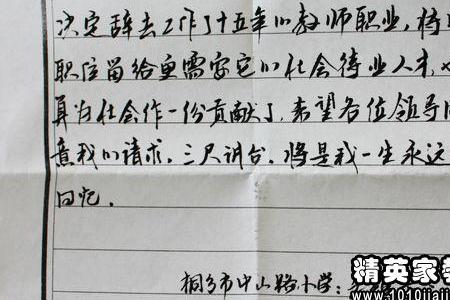 决定辞去工作了十五年的教师职业，将
职位留给更需要它的社会待业人才，
算为社会作一份贡献了，希望各位领导同
意我的请求。三尺讲台，将是我一生永远
回忆。
桐乡市中山路小学：
精英家教
www.1010jiajiao